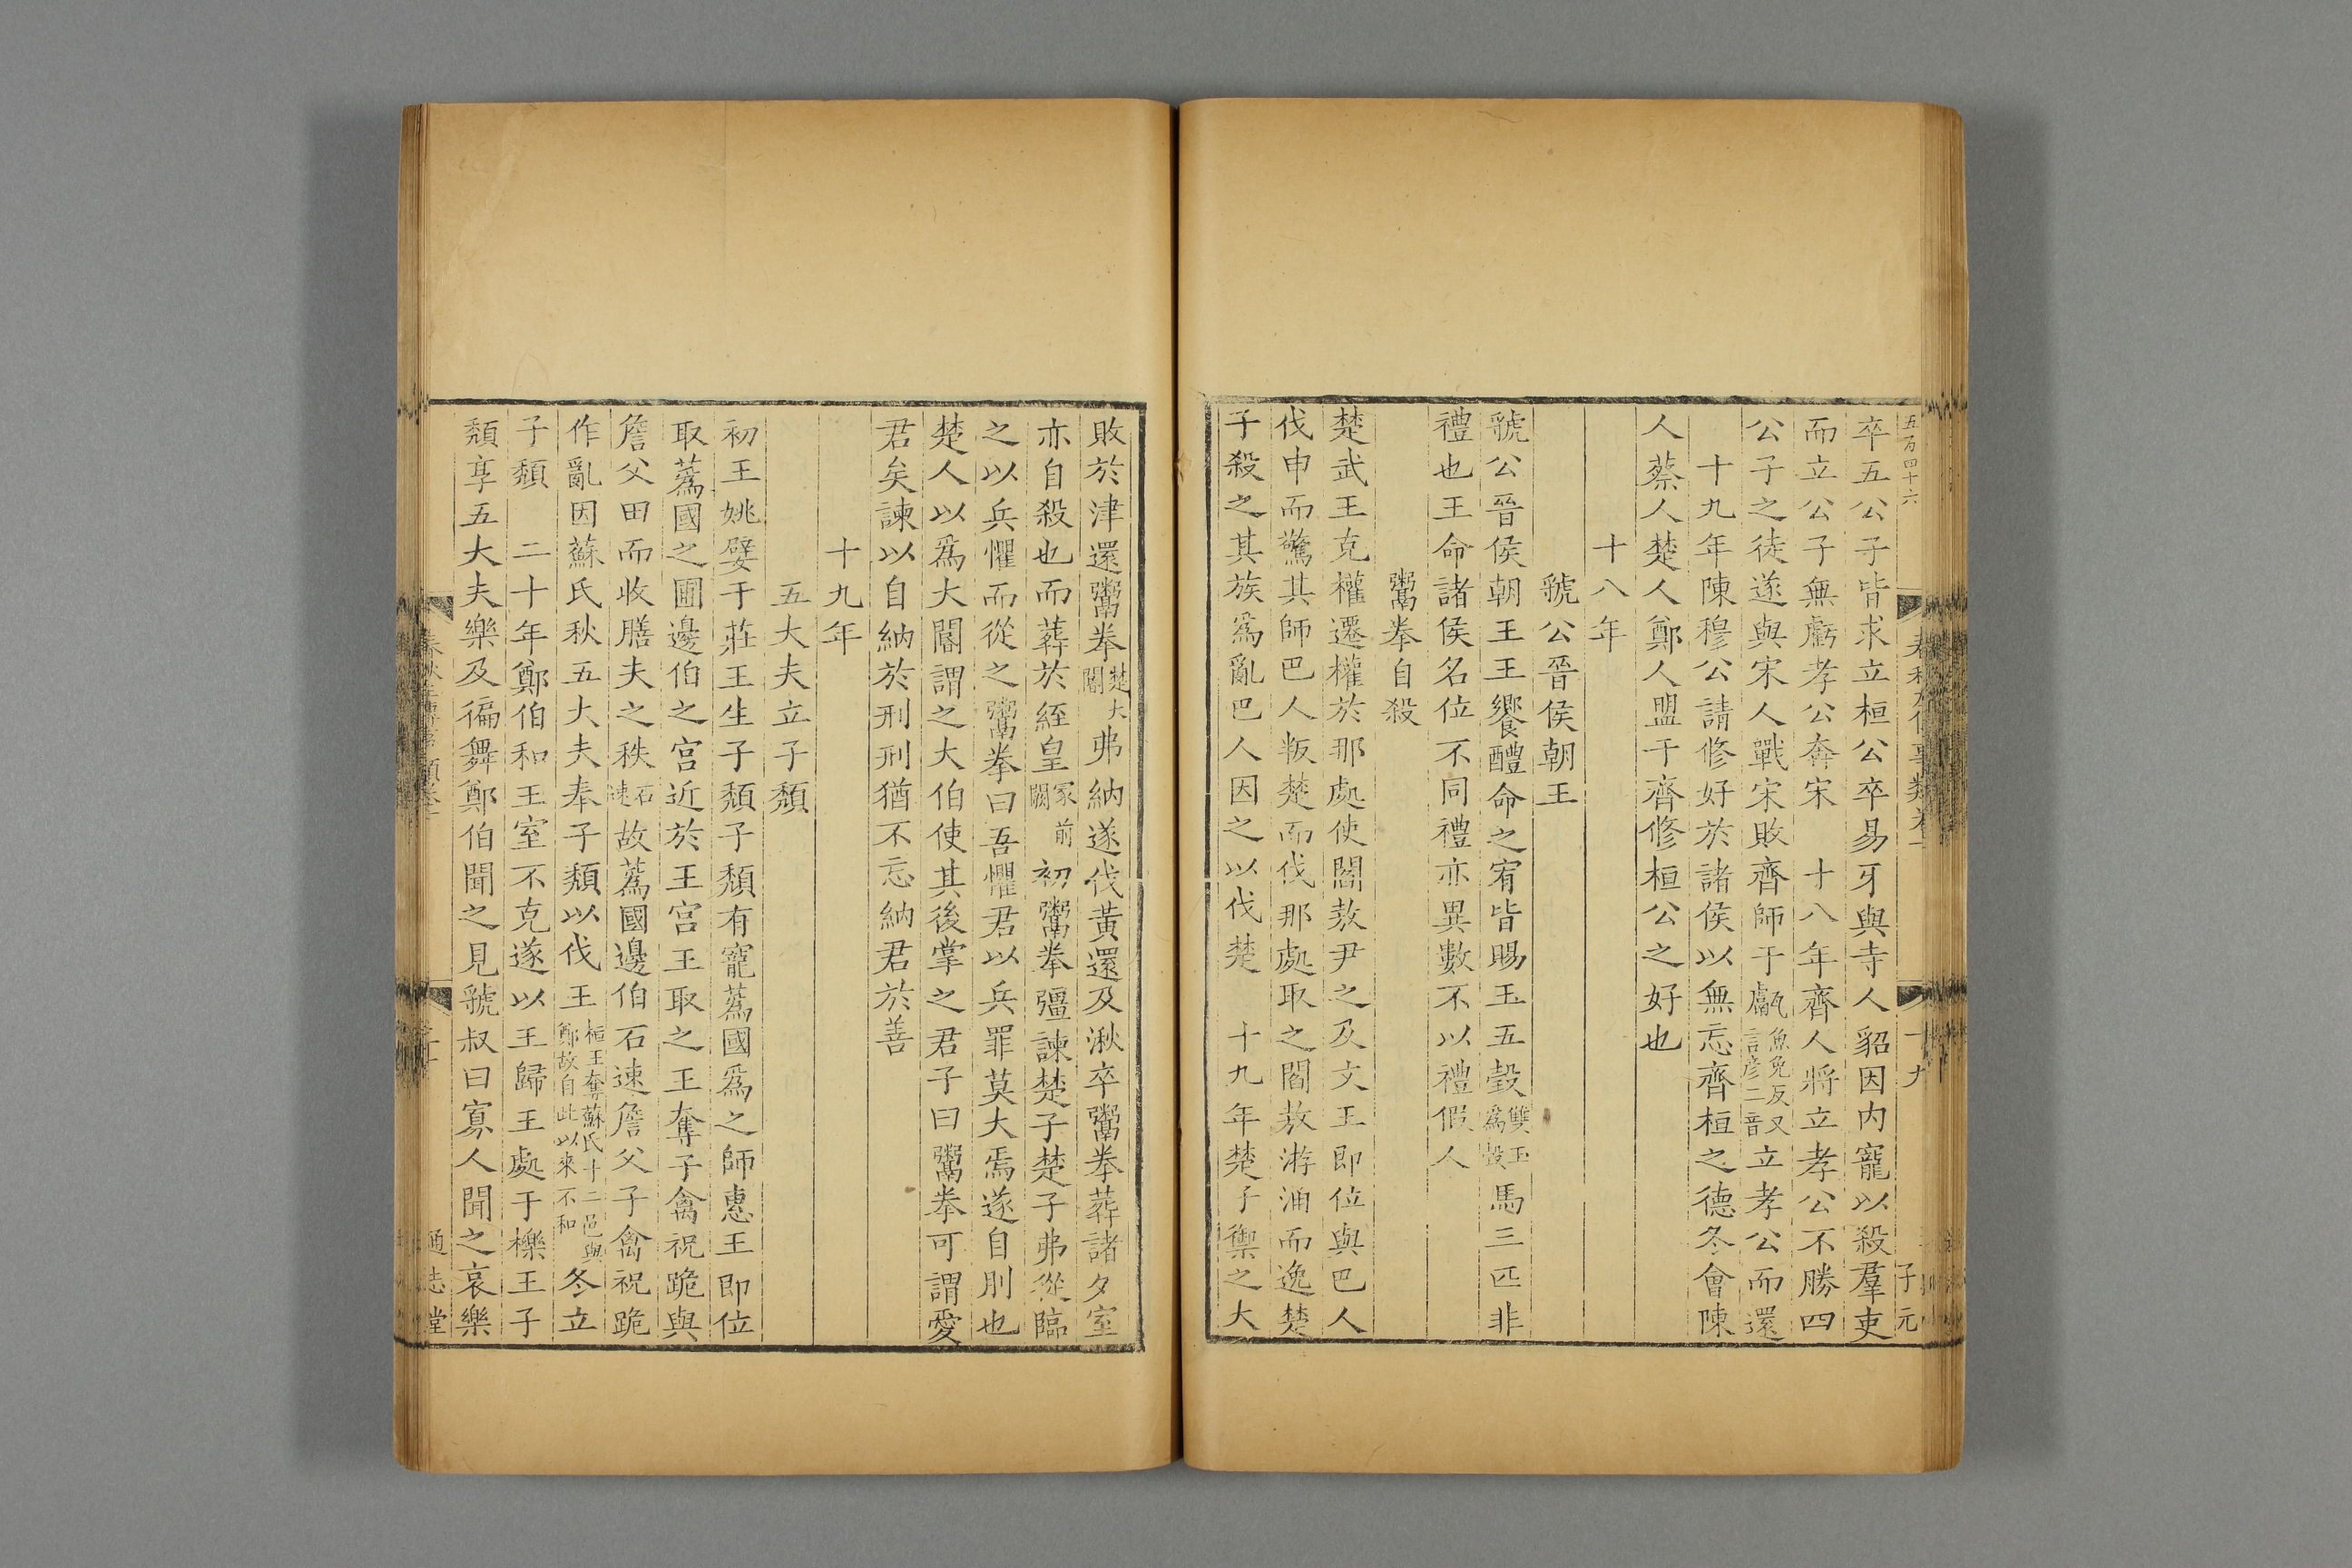 五百四十六
十九
子元
卒五公子皆求立桓公卒易牙與寺人貂因内寵以殺羣吏
而立公子無虧孝公奔宋　十八年齊人將立孝公不勝四
公子之徒遂與宋人戰宋敗齊師于甗魚免反又言彦二音立孝公而還
十九年陳穆公請修好於諸侯以無忘齊桓之德冬會陳
人蔡人楚人鄭人盟于齊修桓公之好也
十八年
虢公晉侯朝王
虢公晉侯朝王王饗醴命之宥皆賜玉五瑴雙玉爲瑴馬三匹非
禮也王命諸侯名位不同禮亦異數不以禮假人
鬻拳自殺
楚武王克權遷權於那處使閻敖尹之及文王即位與巴人
伐申而驚其師巴人叛楚而伐那處取之閻敖游涌而逸楚
子殺之其族爲亂巴人因之以伐楚　十九年楚子禦之大
敗於津還鬻拳楚大閽弗納遂伐黃還及湫卒鬻拳葬諸夕室
亦自殺也而葬於絰皇冢前闕初鬻拳彊諫楚子楚子弗從臨
之以兵懼而從之鬻拳曰吾懼君以兵罪莫大焉遂自刖也
楚人以爲大閽謂之大伯使其後掌之君子曰鬻拳可謂愛
君矣諫以自納於刑刑猶不忘納君於善
十九年
五大夫立子頹
初王姚嬖于莊王生子頹子頹有寵蔿國爲之師惠王即位
取蔿國之圃邊伯之宫近於王宫王取之王奪子禽祝跪與
詹父田而收膳夫之秩石速故蔿國邊伯石速詹父子禽祝跪
作亂因蘇氏秋五大夫奉子頹以伐王桓王奪蘇氏十二邑與鄭故自此以來不和冬立
子頹　二十年鄭伯和王室不克遂以王歸王處于櫟王子
頹享五大夫樂及徧舞鄭伯聞之見虢叔曰寡人聞之哀樂
通志堂